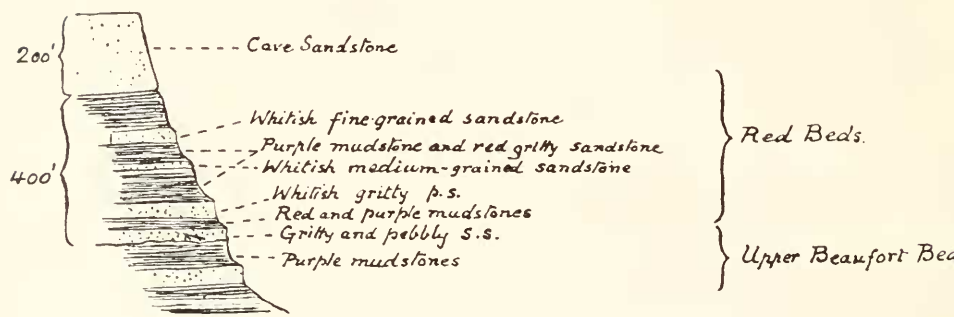 200'
Cave Sandstone
Whitish fine-grained sandstone
Purple mudstone and red gritty sandstone
Red Beds.
400'
Whitish medium-grained sandstone
Whitish gritty p.s.
Red and purple mudstones
Gritty and pebbly s.s.
Upper Beaufort Bed
Purple mudstones